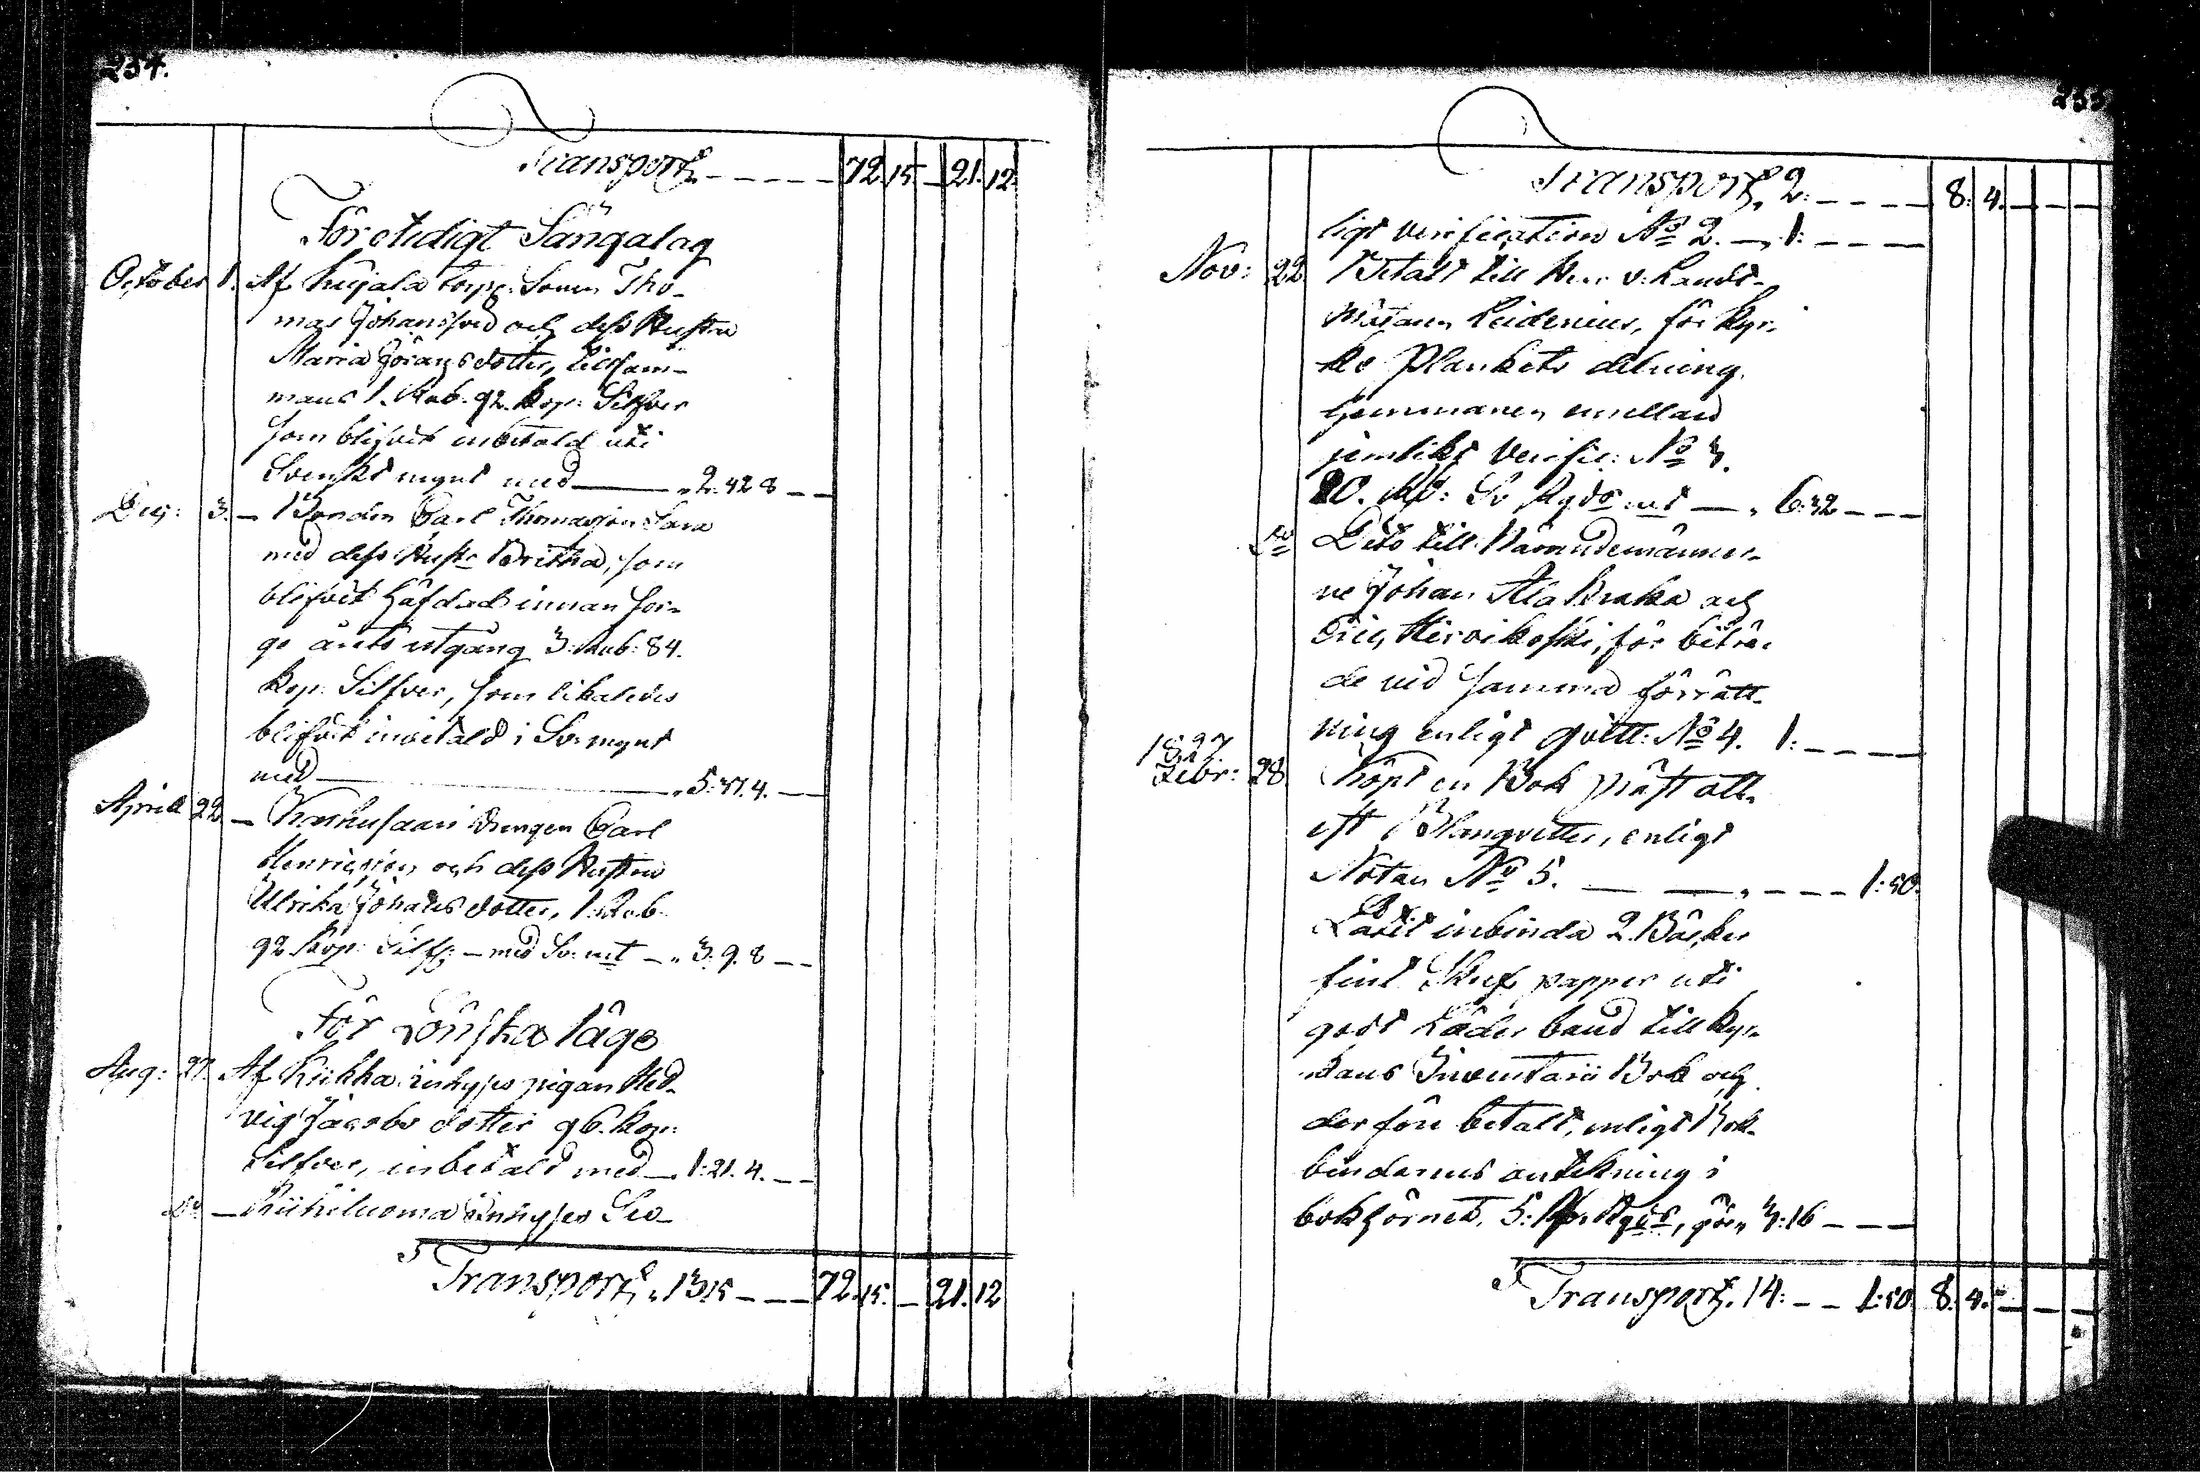 234.
Transport - - - - 72. 15. - 21. 12.
Företidigt Sängalag
October 1. Af Kujala torp. Sonen Tho-
mas Johansson och dess Hustru
Maria Göransdotter, tillsam-
mans 1. Rub. 92. Kop: Silfver
som blifvit inbetald uti
Svenskt mynt med — „ 2. 42. 8 - -
Dec: 3. — Bonden Carl Thomasson Sara
med dess Hust. Britha, som
blifvit häfdad innan sor-
ge årets utgång 3. Rub: 84.
Kop: Silfver, som likaledes
blifvit inbetald i Sv: mynt
med — „ 5: 37. 4. —
Aprill 22 — Karhusaari Drengen Carl
Henricsson och dess Hustru
Ulrika Johansdotter, 1. Rub.
92 Kop: Silf: — med Sv: mt — „ 3. 9. 8 - -
För Lönskaläge
Aug: 27. Af Kiikka inhyses pigan Hed-
vig Jacobs dotter 96. Kop:
Silfver, inbetald med — 1: 21. 4. - -
Do — Riihiluoma Inhyses Seo-
Transport „ 13 15 - - - 72. 15. — 21. 12
235
Transport „ 2: - - - - 8. 4. — — —
ligt verification No 2. — „ 1: - - -
Nov: 22 Betalt till Herr v: Landt-
mätaren Leidenius, för Kyr-
ko Plankets delning
Hemmanen emellan
jemlikt Verific: No 3.
20. Rd: Sv Rgds mt — „ 6: 32 - - -
Do Dito till Nämndemänner-
ne Johan Ala Braka och
Eric Hirvikoski, för biträ-
de vid samma förrätt-
ning enligt qvitt: No 4. 1: - - - -
1827
Febr: 28. Köpt en Bok präst att-
est Blanqvetter, enligt
Notan No 5. — — „ - - - 1: 50.
Låtit inbinda 2. Böcker
fint Skrif papper uti
godt Läder band till Kyr-
kans Inventarii Bok och
derföre betalt, enligt Bok-
bindarens antekning i
bokhörnet, 5: Rd. Rgds, gör „ 3: 16 - - -
Transport. 14: - - 1: 50 8. 4. — — —